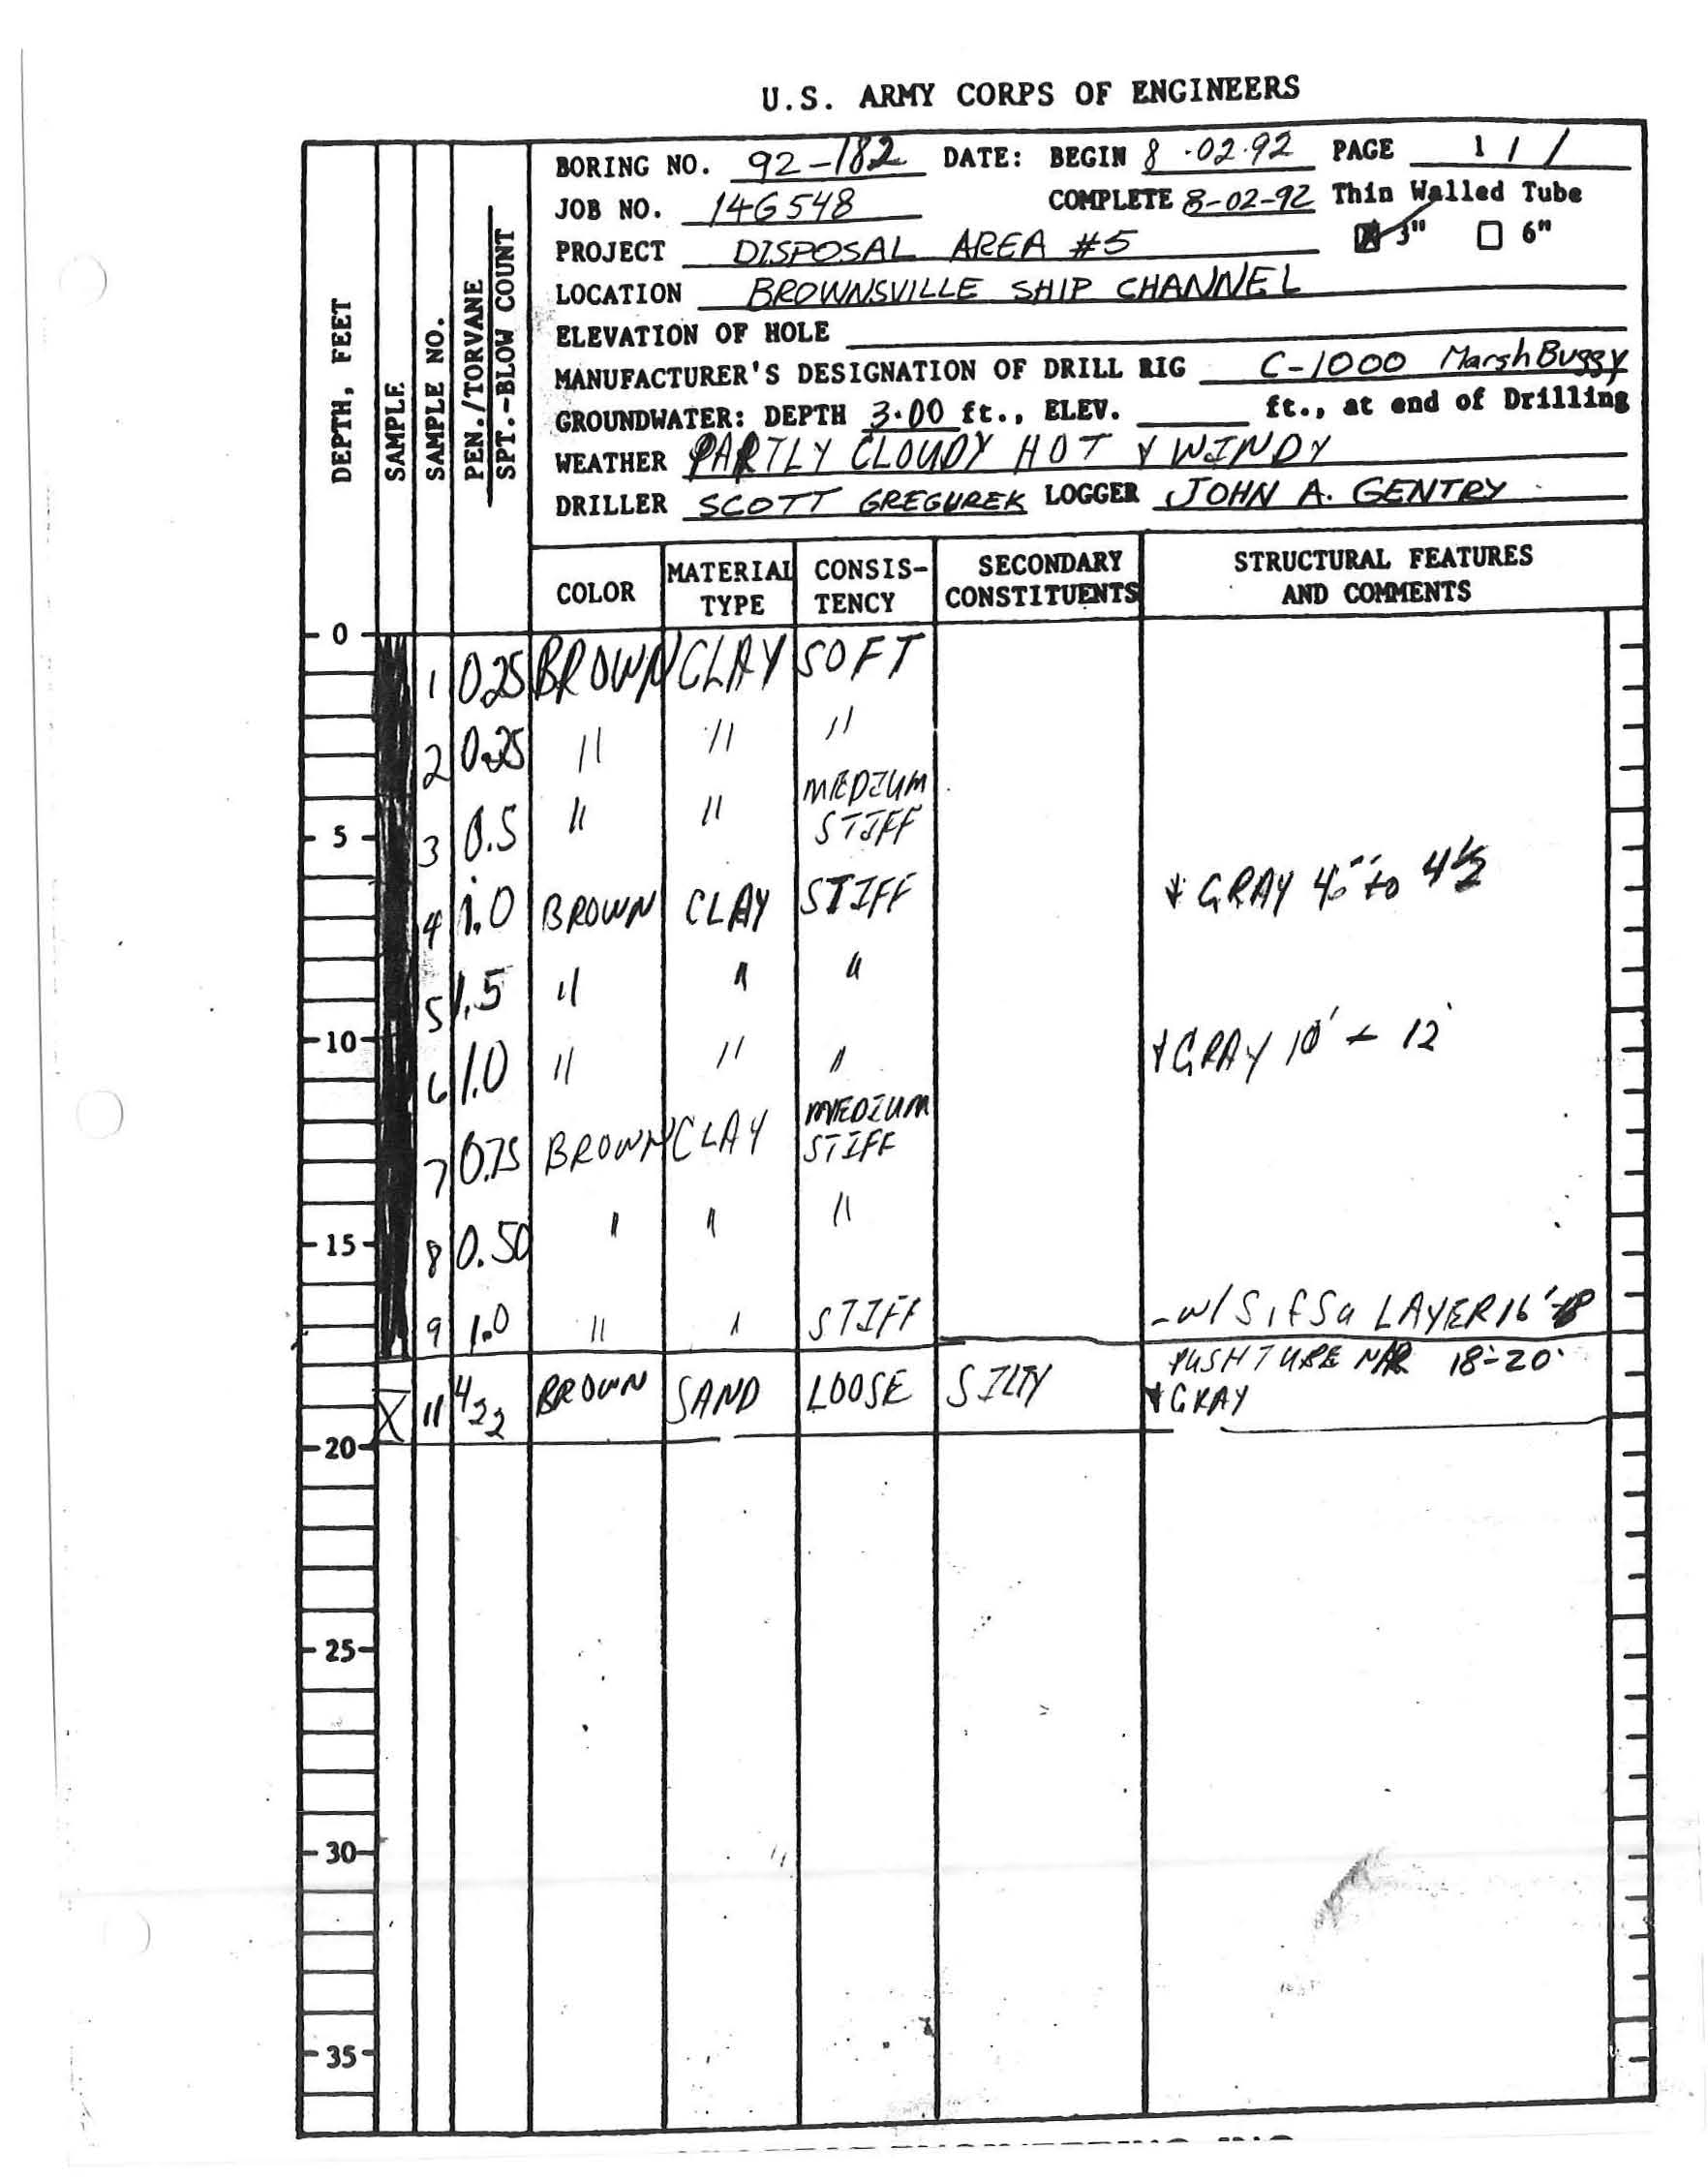 U.S. ARMY CORPS OF ENGINEERS
BORING NO. 92-182 DATE: BEGIN 8-02-92 PAGE 1 / 1
JOB NO. 14G548 COMPLETE 8-02-92 Thin Walled Tube
PROJECT DISPOSAL AREA #5 3" 6"
LOCATION BROWNSVILLE SHIP CHANNEL
ELEVATION OF HOLE
MANUFACTURER'S DESIGNATION OF DRILL RIG C-1000 Marsh Buggy
GROUNDWATER: DEPTH 3.00 ft., ELEV. ft., at end of Drilling
WEATHER PARTLY CLOUDY HOT & WINDY
DRILLER SCOTT GREGUREK LOGGER JOHN A. GENTRY
DEPTH, FEET
SAMPLE
SAMPLE NO.
PEN./TORVANE
SPT.-BLOW COUNT
COLOR MATERIAL TYPE CONSIS-TENCY SECONDARY CONSTITUENTS STRUCTURAL FEATURES AND COMMENTS
0
1 0.25 BROWN CLAY SOFT
2 0.25 " " "
5 3 0.5 " " MEDIUM STIFF
4 1.0 BROWN CLAY STIFF & GRAY to 4½
5 1.5 " " "
10 6 1.0 " " " & GRAY 10' - 12'
7 0.75 BROWN CLAY MEDIUM STIFF
15 8 0.50 " " "
9 1.0 " " STIFF - w/ SifSa LAYER 16'-18
PUSH TUBE 18'-20'
X 11 4/22 BROWN SAND LOOSE SILTY & GRAY
20
25
30
35